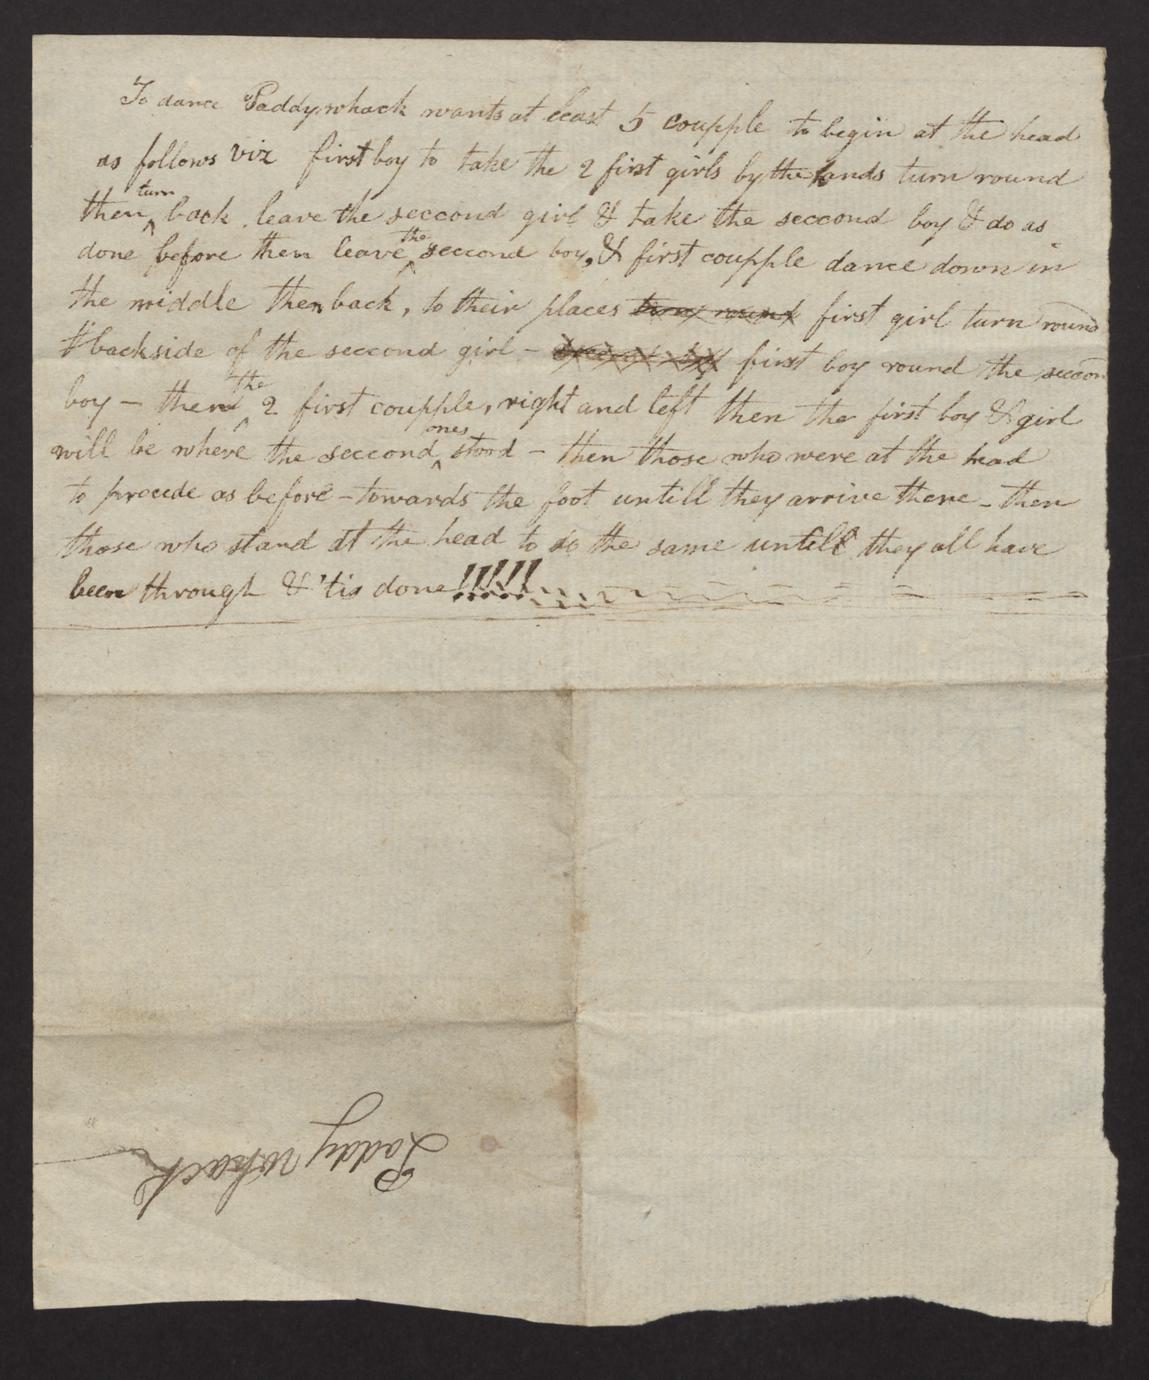 To dance Paddywhack wants at least 5 coupple to begin at the head
as follows viz first boy to take the 2 first girls by the hands turn round
then turn back leave the seccond girl & take the seccond boy & do as
done before then leave the seccond boy, & first coupple dance down in
the middle then back, to their places turn round first girl turn round
backside of the seccond girl - first boy round the seccon
boy - then the 2 first coupple, right and left then the first boy & girl
will be where the seccond ones stood - then those who were at the head
to procede as before - towards the foot untill they arrive there - then
those who stand at the head to do the same untill they all have
been through & 'tis done!!!!!
Paddy whack